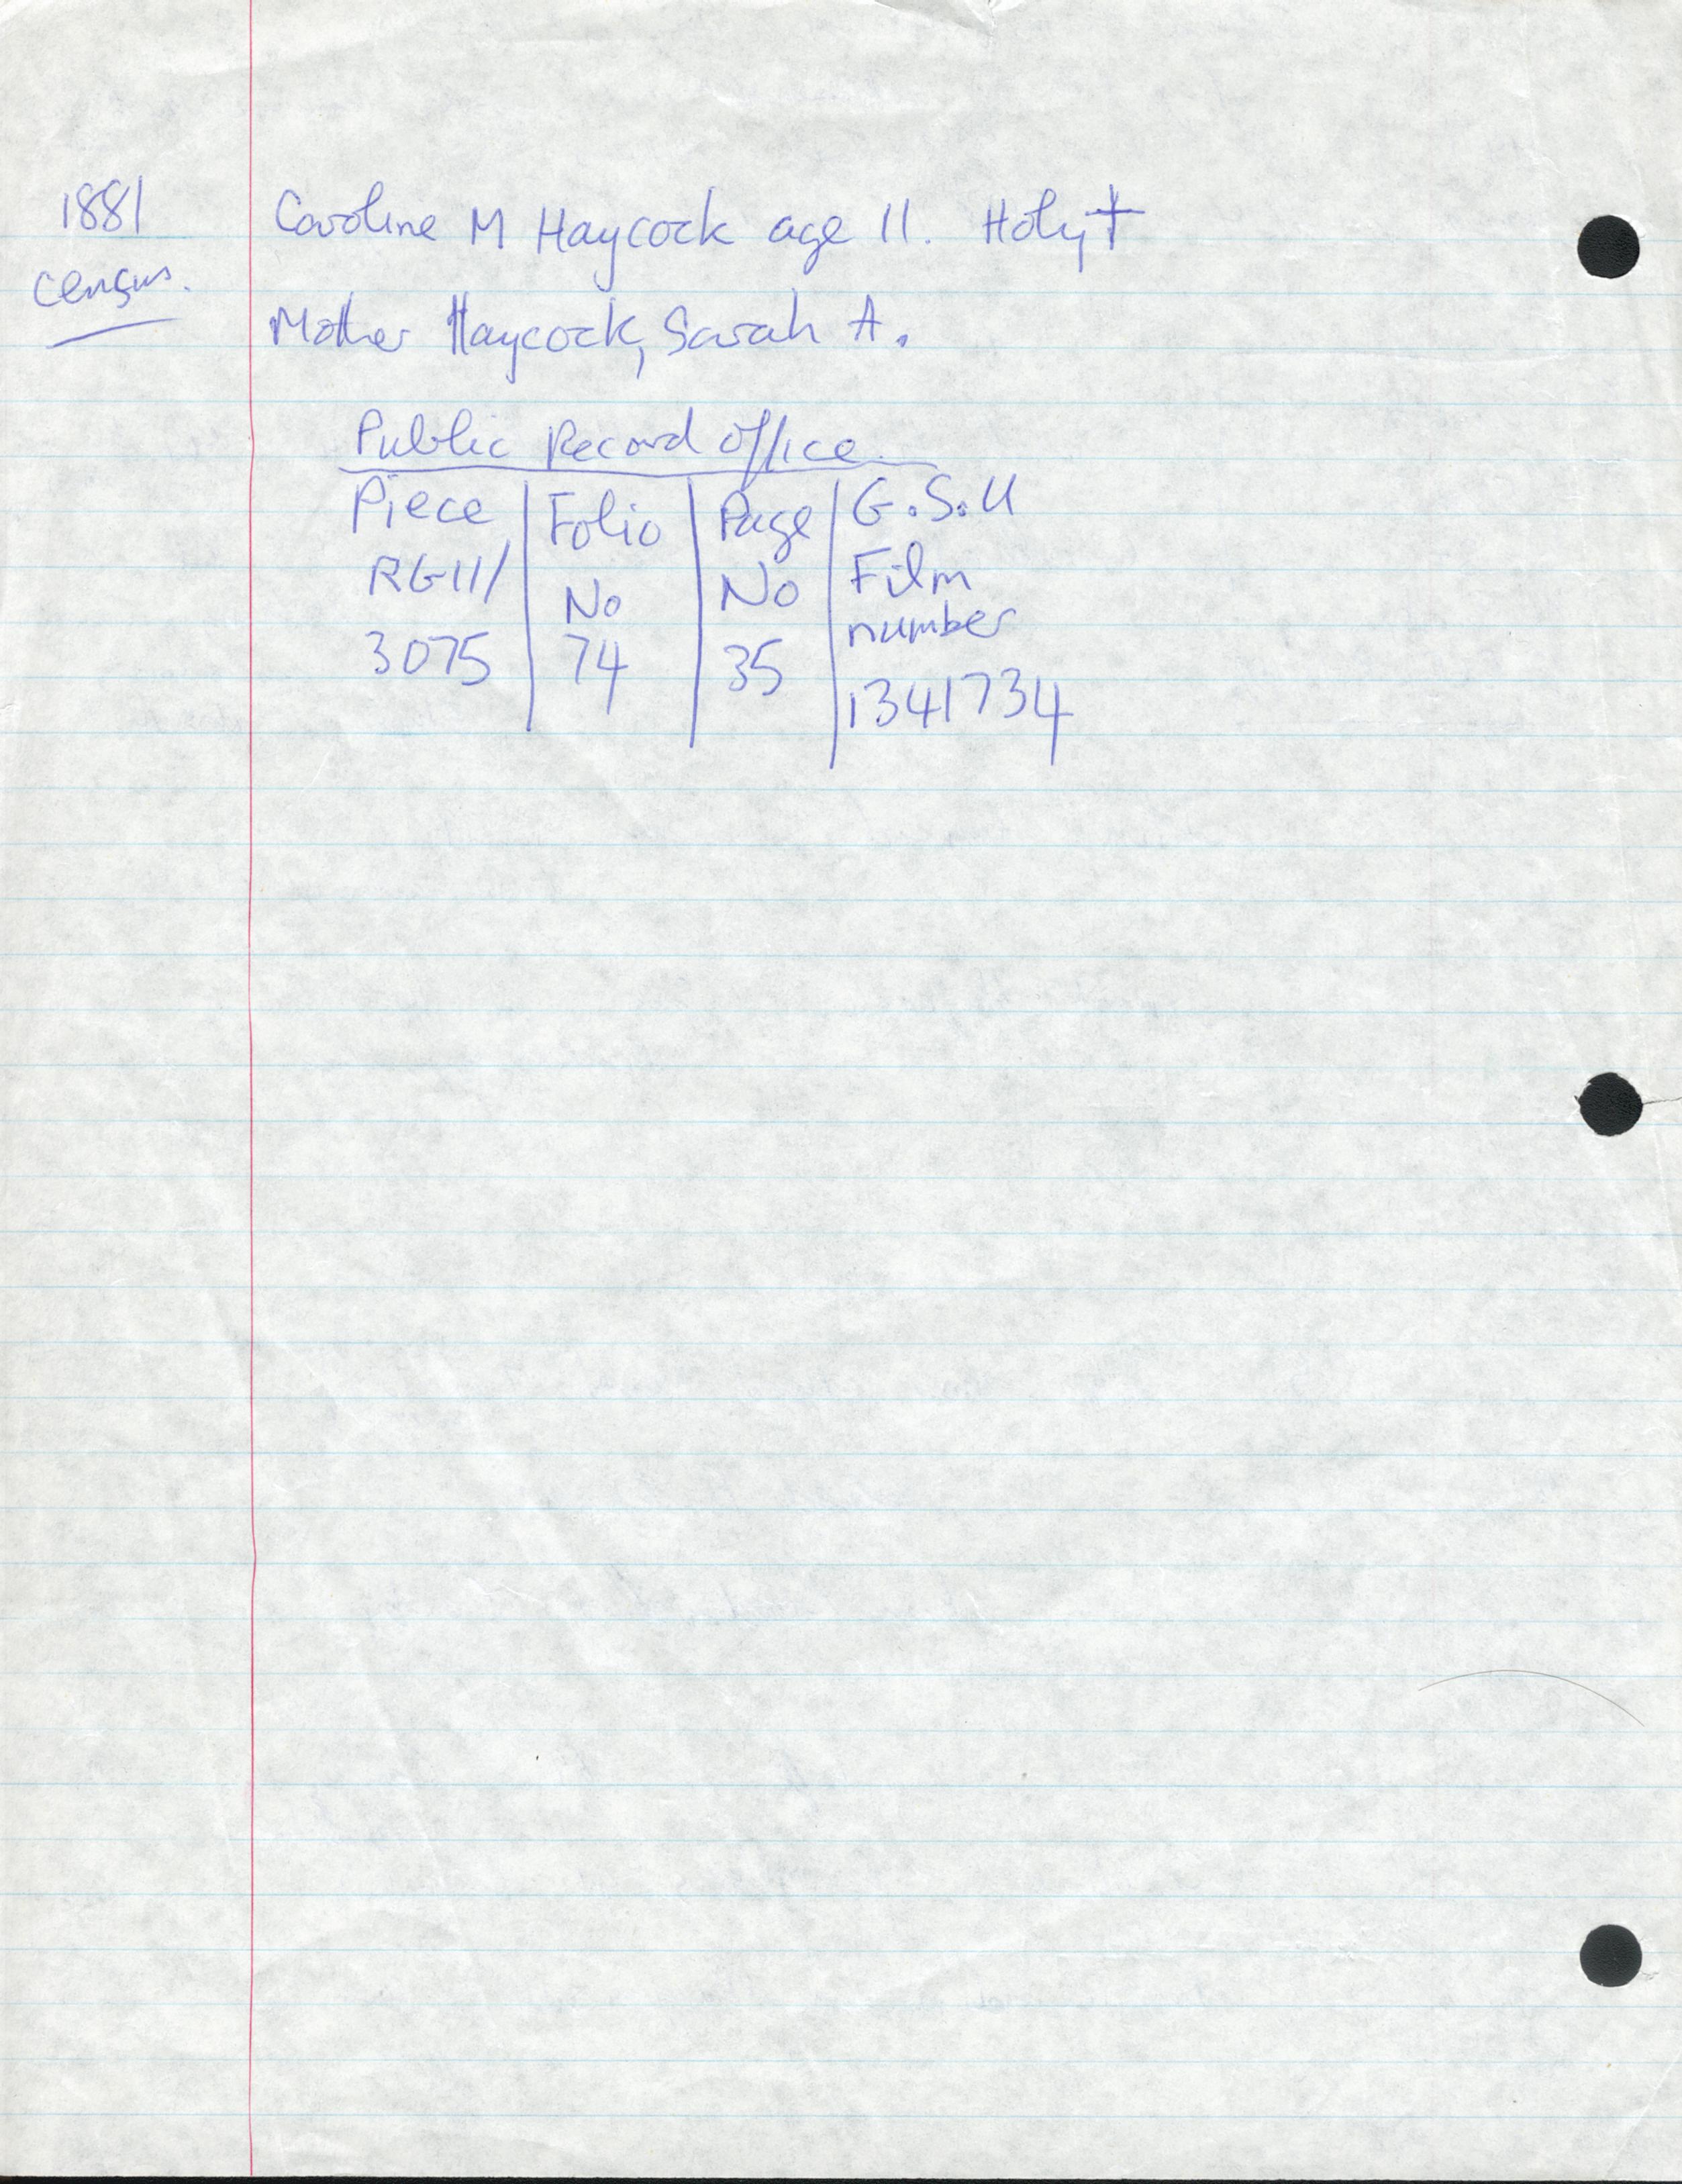 1881 census.
Caroline M Haycock age 11. Holy†
Mother Haycock, Sarah A.
Public Record Office
Piece RG11/ 3075
Folio No 74
Page No 35
G.S.U Film number 1341734